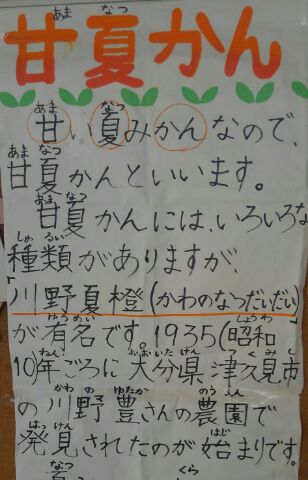 甘夏かん
甘い夏みかんなので、
甘夏かんといいます。
甘夏かんには、いろいろな
種類がありますが、
「川野夏橙(かわのなつだいだい)」
が有名です。1935(昭和
10)年ごろに大分県津久見市
の川野豊さんの農園で
発見されたのが始まりです。